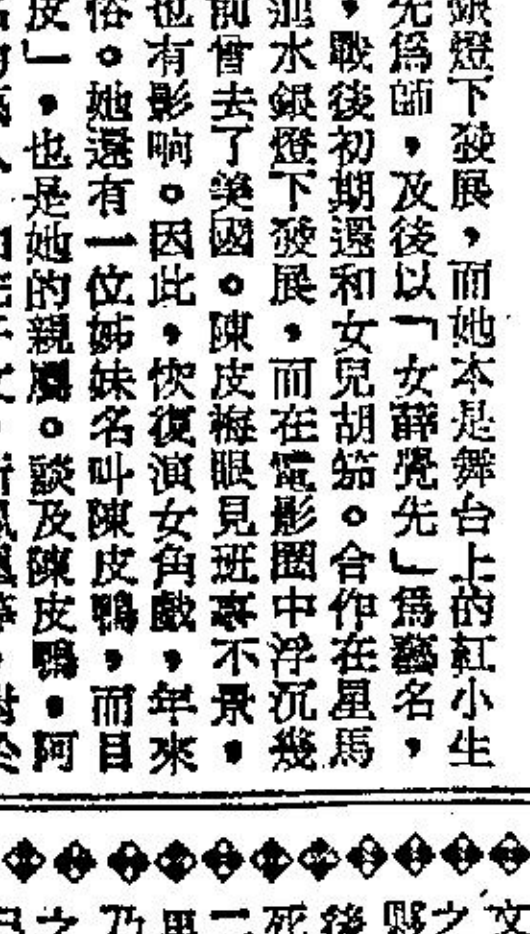 銀燈下發展，而她本是舞台上的紅小生
先爲師，及後以「女薛覺先」爲藝名，
，戰後初期還和女兒胡笳。合作在星馬
水銀燈下發展，而在電影圈中浮沉幾
前曾去了美國。陳皮梅眼見班事不景，
也有影响。因此，恢復演女角戲，年來
俗。她還有一位姊妹名叫陳皮鴨，而目
皮」，也是她的親屬。談及陳皮鴨，阿
文之
後死二里乃之